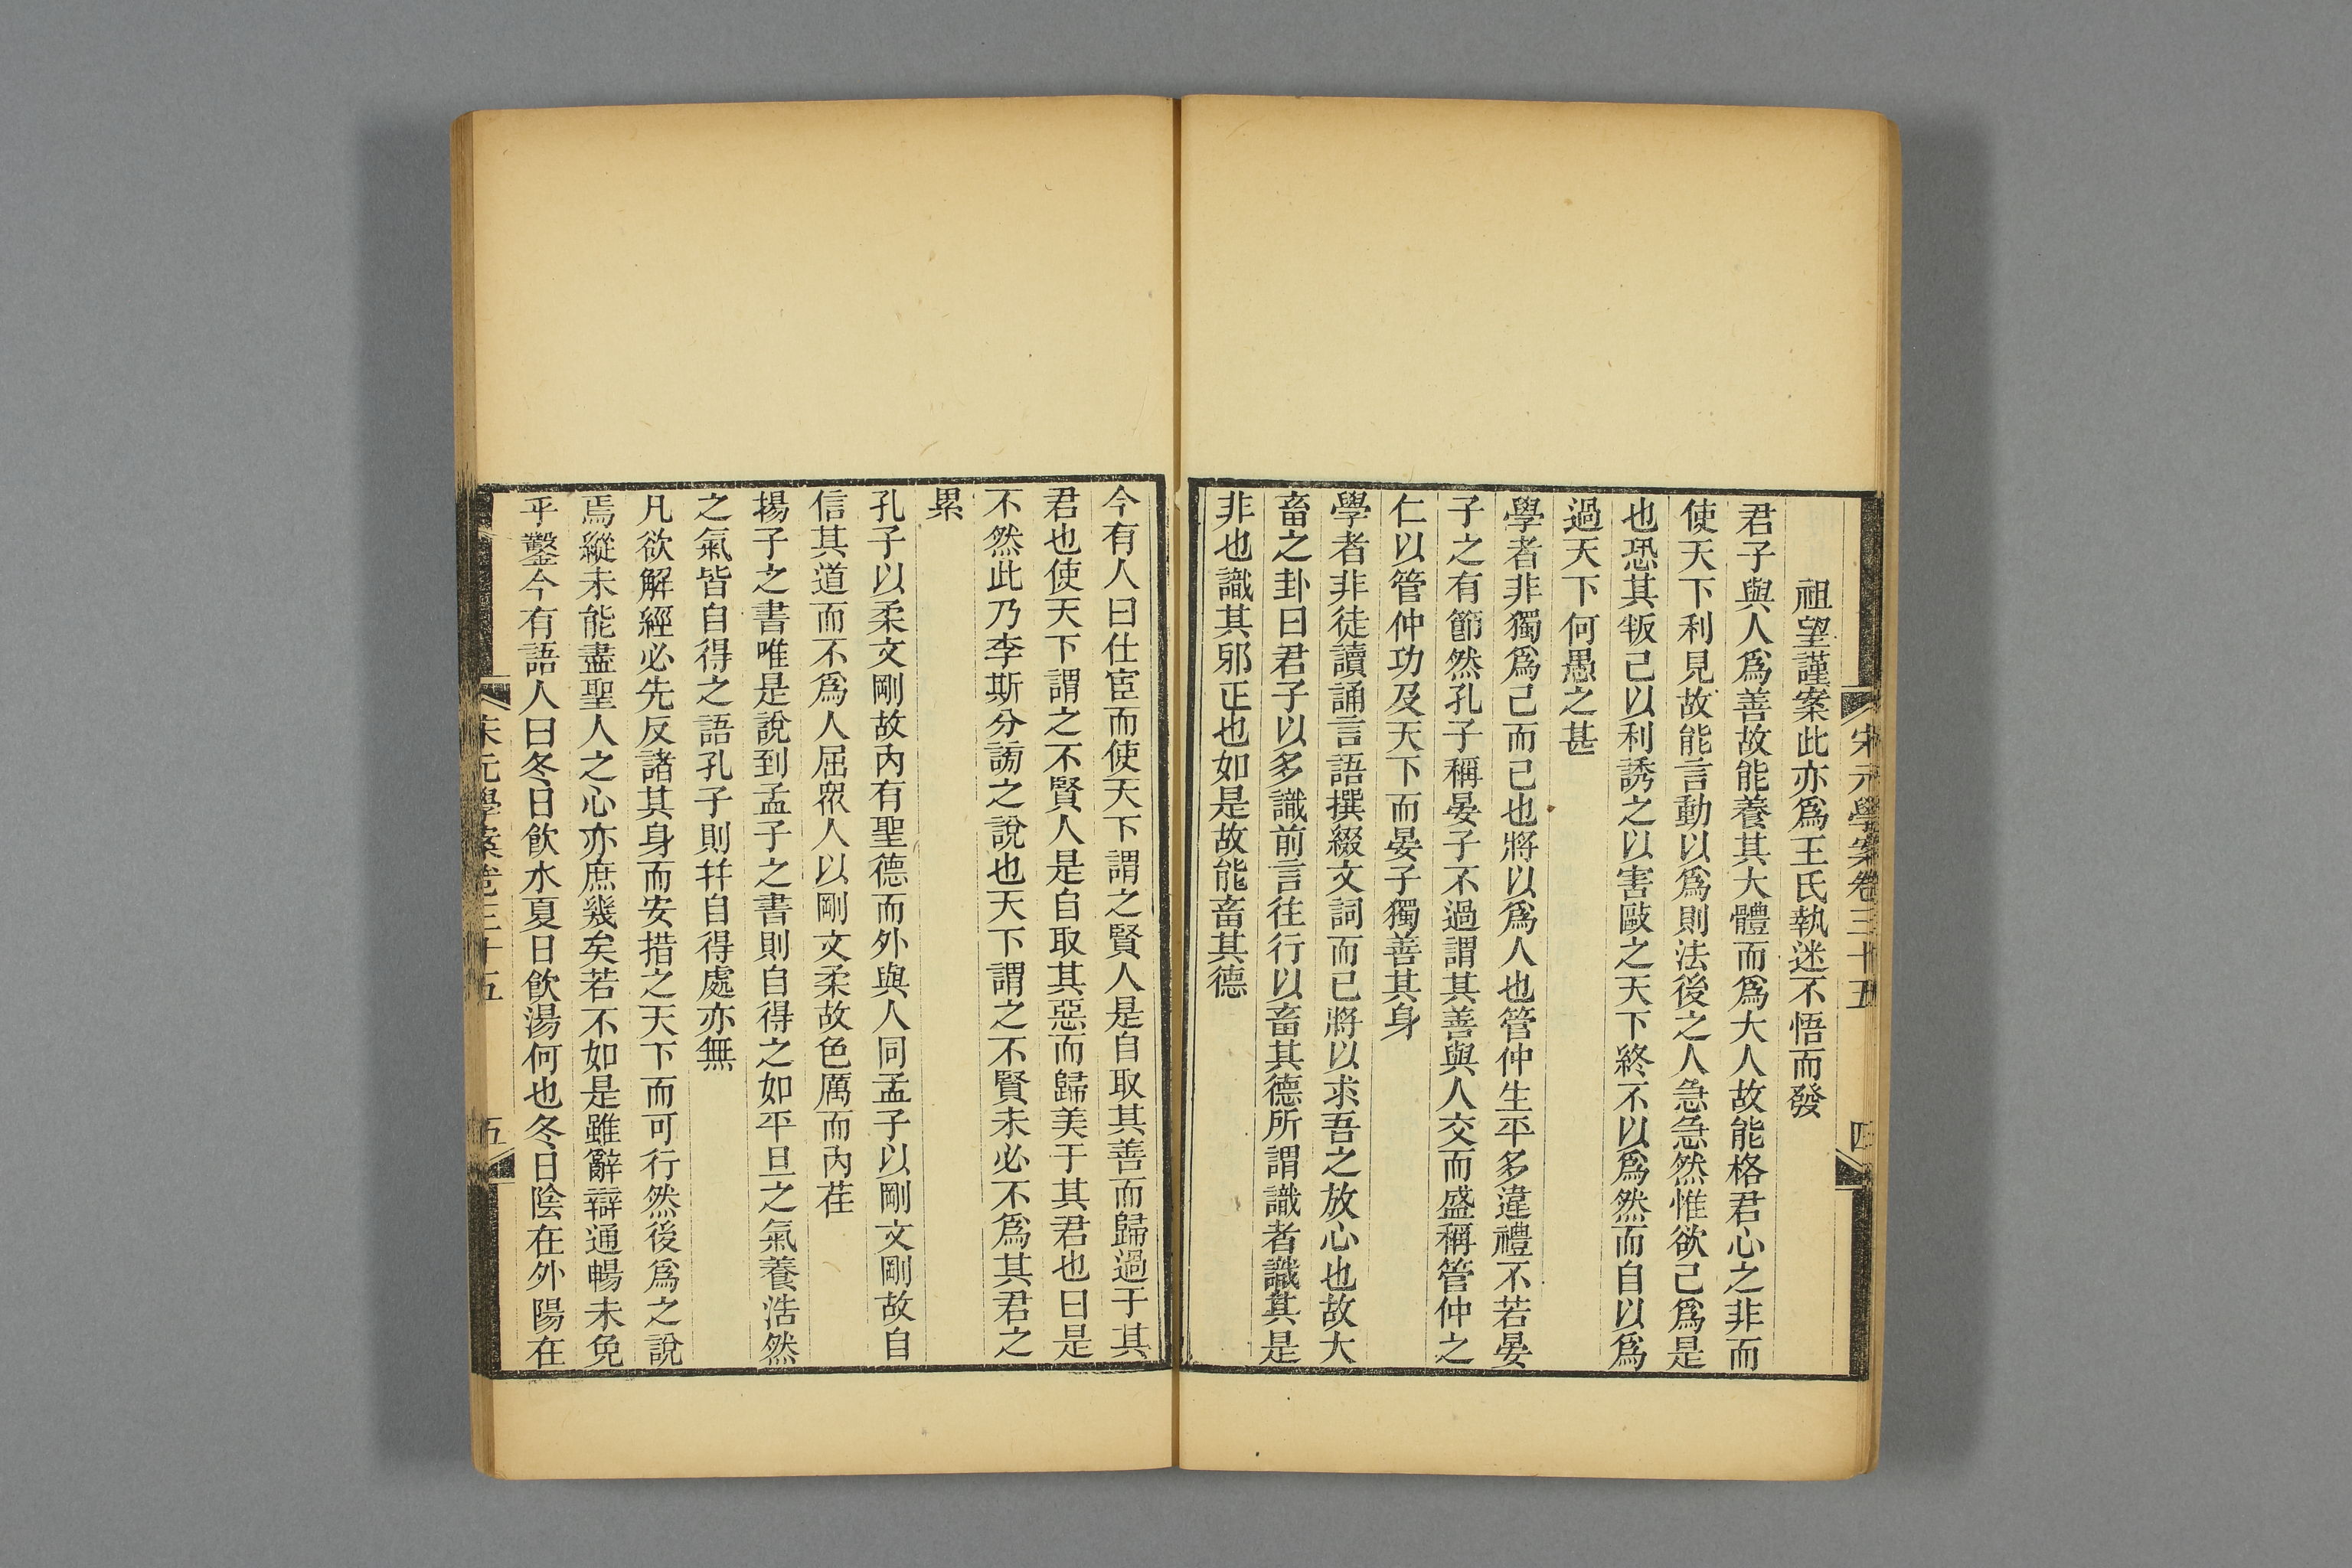 宋元學案卷三十五 四
祖望謹案此亦爲王氏執迷不悟而發
君子與人爲善故能養其大體而爲大人故能格君心之非而
使天下利見故能言動以爲則法後之人急急然惟欲己爲是
也恐其叛己以利誘之以害敺之天下終不以爲然而自以爲
過天下何愚之甚
學者非獨爲己而已也將以爲人也管仲生平多違禮不若晏
子之有節然孔子稱晏子不過謂其善與人交而盛稱管仲之
仁以管仲功及天下而晏子獨善其身
學者非徒讀誦言語撰綴文詞而已將以求吾之放心也故大
畜之卦曰君子以多識前言往行以畜其德所謂識者識其是
非也識其邪正也如是故能畜其德
今有人曰仕宦而使天下謂之賢人是自取其善而歸過于其
君也使天下謂之不賢人是自取其惡而歸美于其君也曰是
不然此乃李斯分謗之說也天下謂之不賢未必不爲其君之
累
孔子以柔文剛故內有聖德而外與人同孟子以剛文剛故自
信其道而不爲人屈眾人以剛文柔故色厲而內荏
揚子之書唯是說到孟子之書則自得之如平旦之氣養浩然
之氣皆自得之語孔子則幷自得處亦無
凡欲解經必先反諸其身而安措之天下而可行然後爲之說
焉縱未能盡聖人之心亦庶幾矣若不如是雖辭辯通暢未免
乎鑿今有語人曰冬日飮水夏日飮湯何也冬日陰在外陽在
宋元學案卷三十五 五